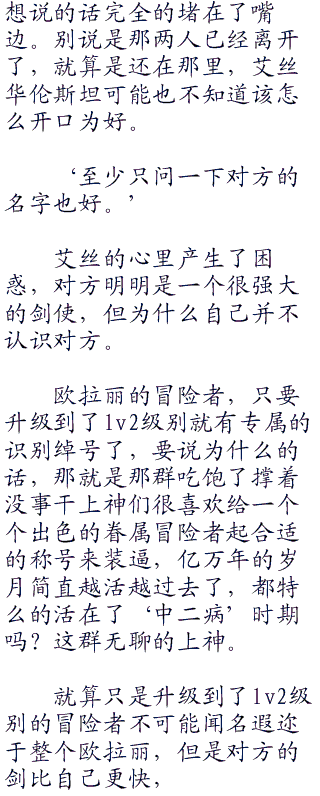 想说的话完全的堵在了嘴
边。别说是那两人已经离开
了，就算是还在那里，艾丝
华伦斯坦可能也不知道该怎
么开口为好。
‘至少只问一下对方的
名字也好。’
艾丝的心里产生了困
惑，对方明明是一个很强大
的剑使，但为什么自己并不
认识对方。
欧拉丽的冒险者，只要
升级到了lv2级别就有专属的
识别绰号了，要说为什么的
话，那就是那群吃饱了撑着
没事干上神们很喜欢给一个
个出色的眷属冒险者起合适
的称号来装逼，亿万年的岁
月简直越活越过去了，都特
么的活在了‘中二病’时期
吗？这群无聊的上神。
就算只是升级到了lv2级
别的冒险者不可能闻名遐迩
于整个欧拉丽，但是对方的
剑比自己更快，